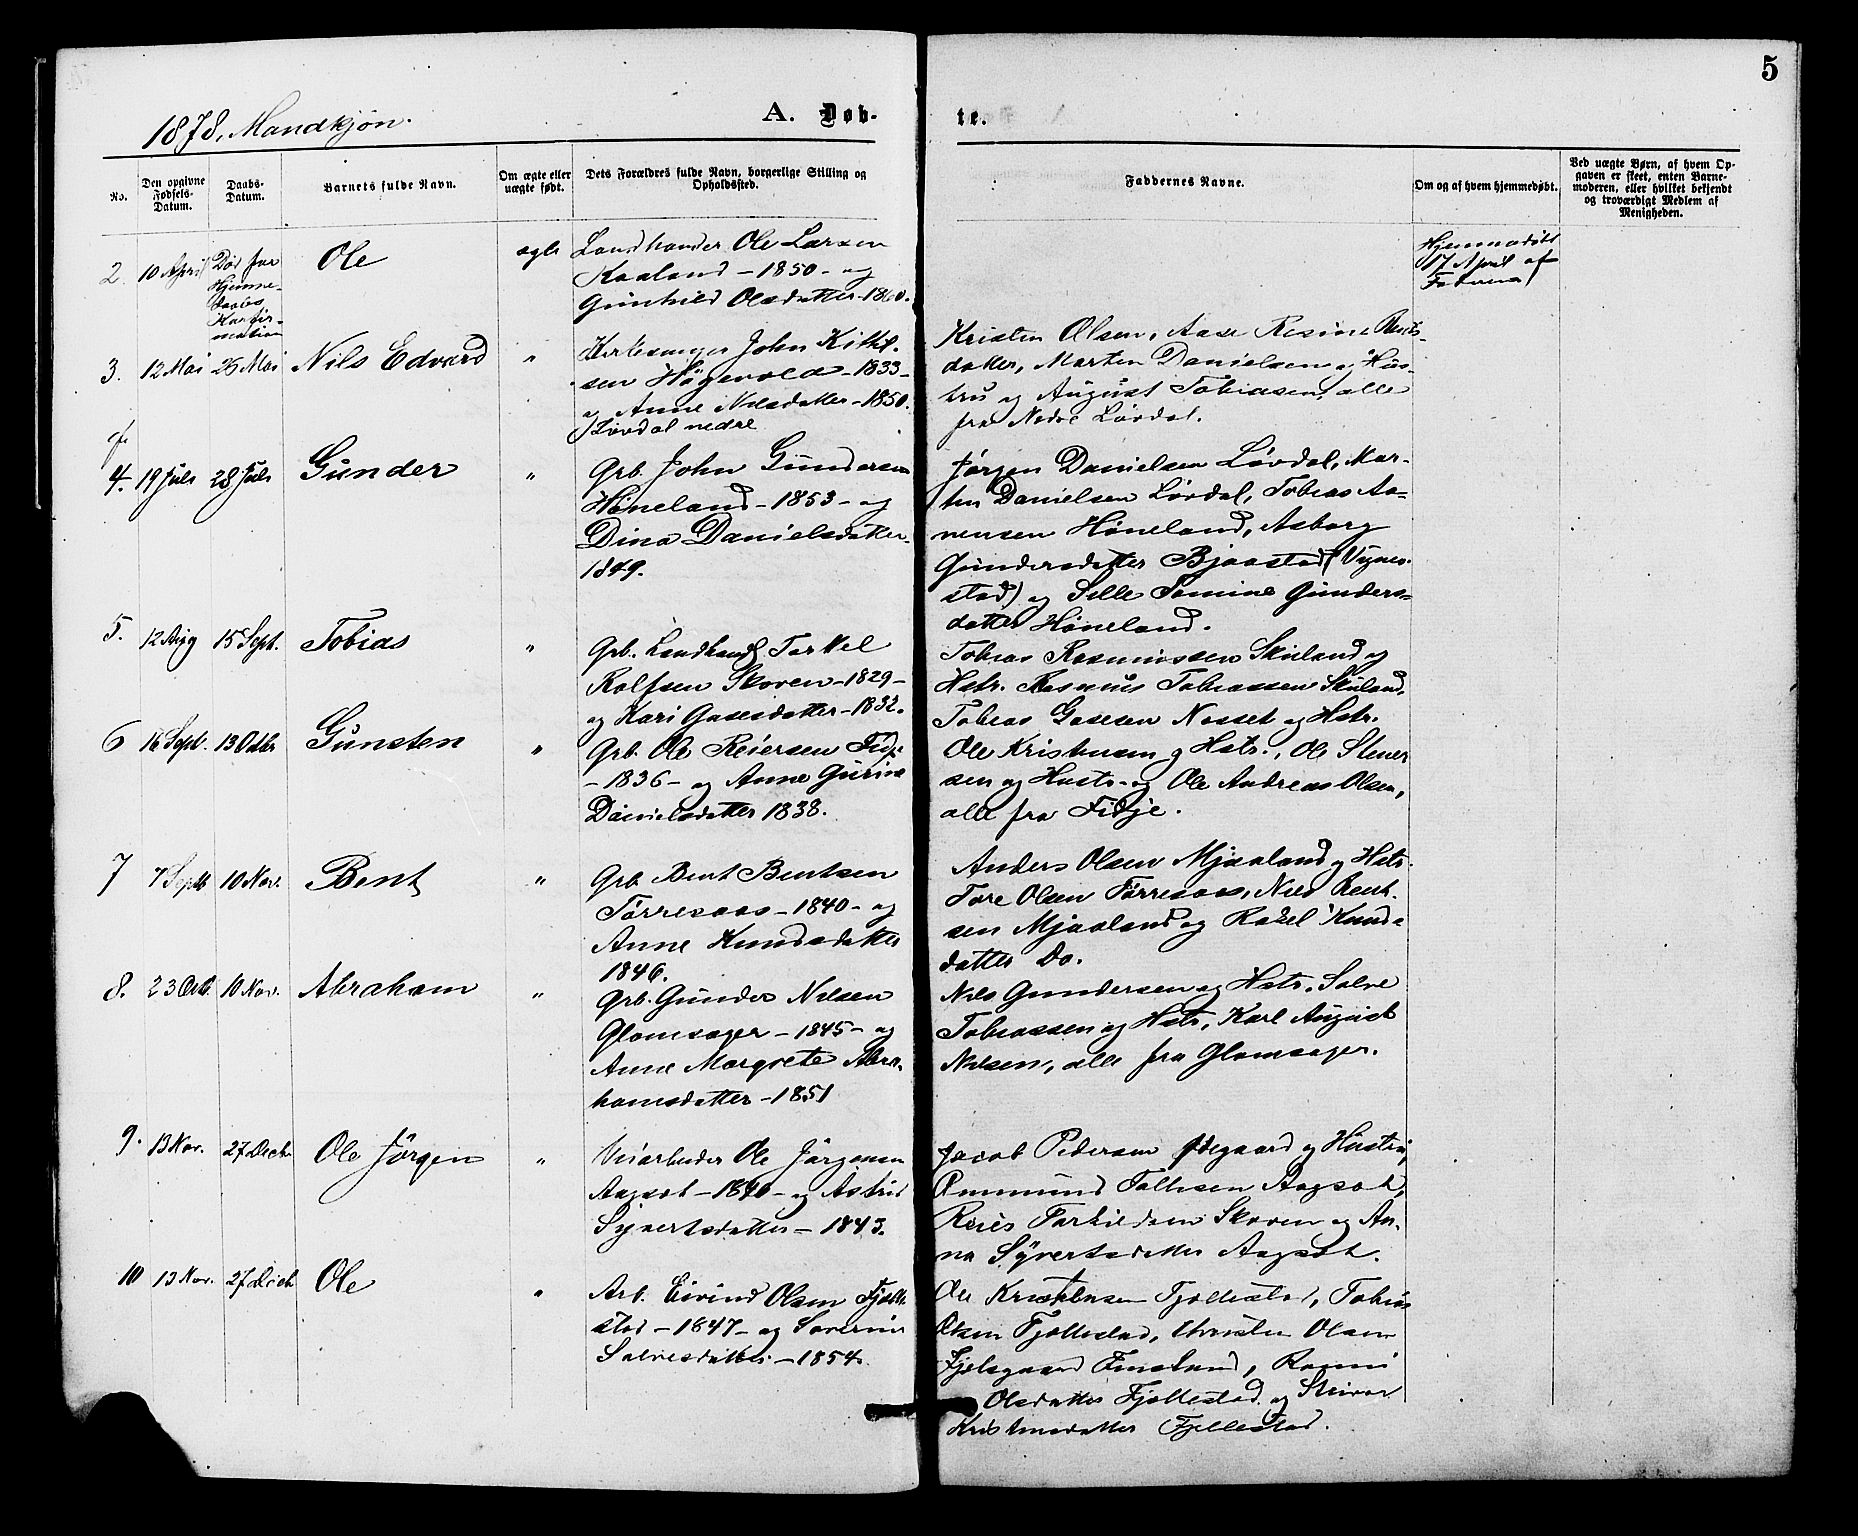 5
1878, Mandkjøn.
A. Døb-
te.
No.
Den opgivne Fødsels-Datum.
Daabs-Datum.
Barnets fulde Navn.
Om ægte eller uægte født.
Dets Forældres fulde Navn, borgerlige Stilling og Opholdssted.
Faddernes Navne.
Om og af hvem hjemmedøbt.
Ved uægte Børn, af hvem Op-
gaven er skeet, enten Barne-
moderen, eller hvilket bekjendt
og troværdigt Medlem af
Menigheden.
2 10 April Død før Ole ægte Landhandler Ole Larsen
Hjemme-
daabs
Konfir-
mation
Kaaland - 1850 - og
Gunhild Olsdatter - 1860.
Hjemmedøbt
17 April af
3. 12 Mai 26 Mai Nils Edvard " Kirkesanger John Kittil-
sen Högevold - 1833 -
og Anne Nilsdatter - 1850.
Løvdal nedre
Kristen Olsen, Aase Resine Bents-
datter, Marten Danielsen og Hus-
tru og August Tobiasen, alle
fra Nedre Løvdal.
4. 19 Juli 28 Juli Gunder " Grb. John Gundersen
Høneland - 1853 - og
Dina Danielsdatter -
1849.
Jørgen Danielsen Løvdal, Mar-
tin Danielsen Løvdal, Tobias Aa-
nensen Høneland, Asborg
Gundersdatter Bjaastad (Vignes-
stad) og Sille Tomine Gunders-
datter Høneland.
5. 12 Aug 15 Sept. Tobias " Grb. Landhandl Tarkel
Rolfsen Skoven - 1829 -
og Kari Gasesdatter - 1832.
Tobias Rasmussen Skuland og
Hstr. Rasmus Tobiassen Skuland,
Tobias Gasesen Nosset og Hstr.
6 16 Sept. 13 Octbr Gunsten " Grb. Ole Reiersen Fidje
- 1836 - og Anne Gurine
Danielsdatter 1838.
Ole Kristensen og Hstr., Ole Stener
sen og Hustr. og Ole Andreas Olsen,
alle fra Fidje.
7 7 Septb 10 Nov. Bent " Grb. Bent Bentsen
Tørresaas - 1840 - og
Anne Knudsdatter
1846.
Anders Olsen Mjaaland og Hstr.
Tore Olsen Tørresaas, Nils Bent
sen Mjaaland og Rakel Knuds-
datter Do.
8. 23 Octb. 10 Nov. Abraham " Grb. Gunder Nilsen
Glomsager - 1845 - og
Anne Margrete Abra-
hamsdatter - 1851
Nils Gundersen og Hstr., Salve
Tobiassen og Hstr, Karl August
Nilsen, alle fra Glomsager.
9. 13 Nov. 27 Decbr Ole Jörgen " Veiarbeider Ole Jörgensen
Aagsöt - 1840 - og Astrid
Syvertsdatter - 1843.
Jacob Pedersen Ødegaard og Hustru,
Ommund Tallesen Aagsöt,
Reies Tarkildsen Skoven og An-
na Syvertsdatter Aagsöt.
10 13 Nov. 27 Decbr Ole " Arb. Eivind Olsen Fjelle
stad - 1847 - og Severine
Salvesdatter - 1854.
Ole Kristensen Fjellestad, Tobias
Olsen Fjellestad, Christen Olsen
Fjelsgaard
Olsdatter Fjellestad og
Kristensdatter Fjellestad.